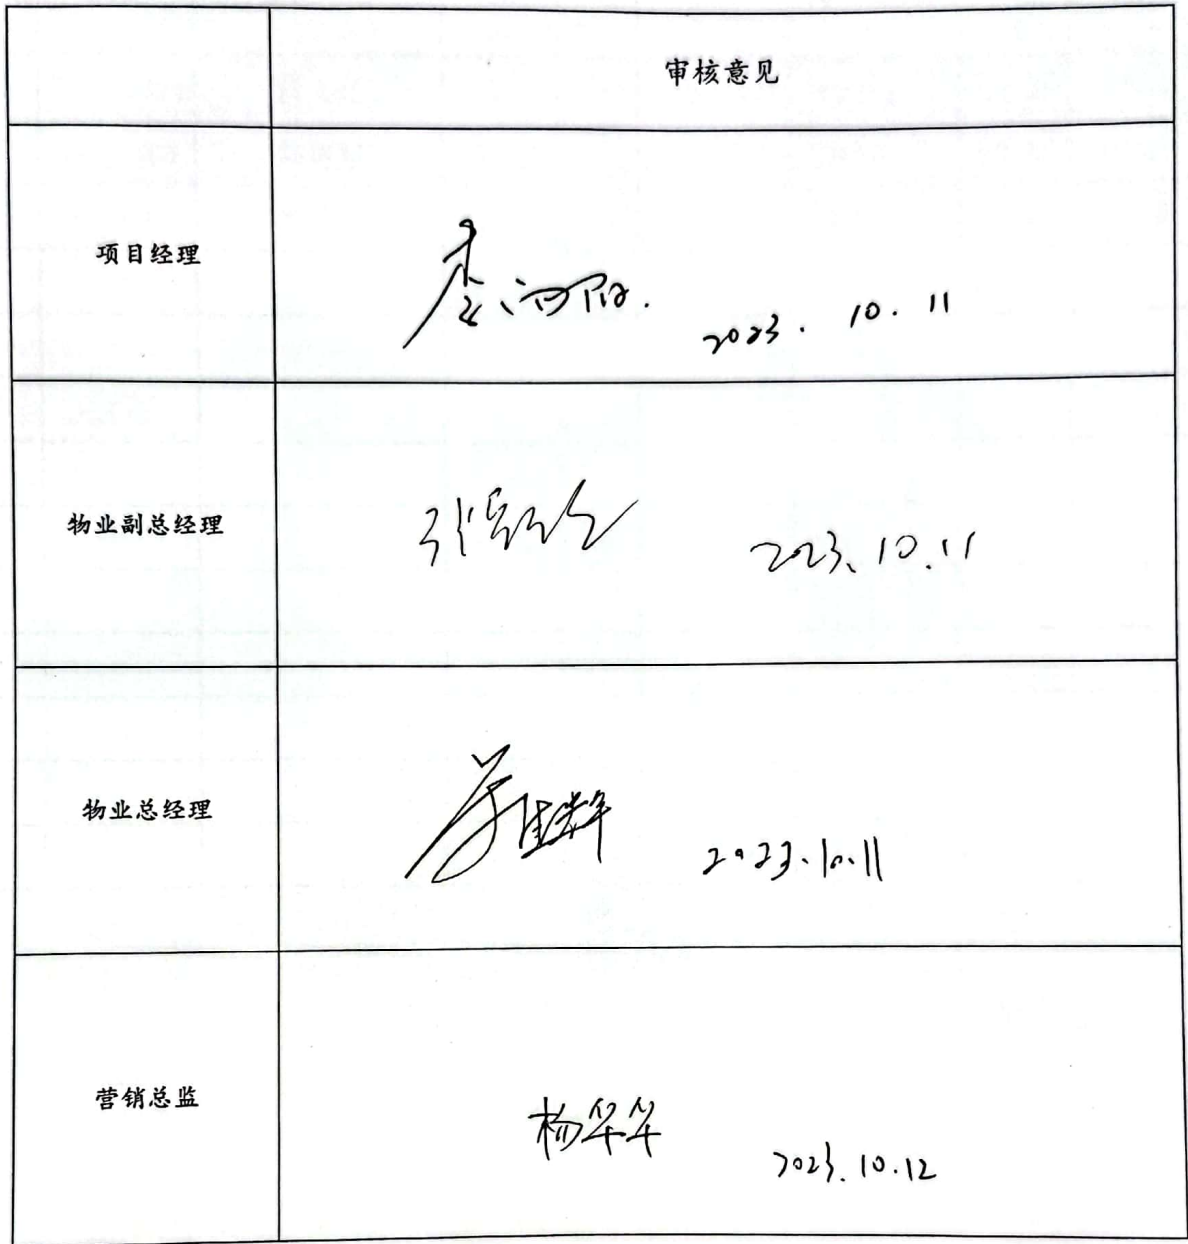 审核意见
项目经理
2023. 10. 11
物业副总经理
2023.10.11
物业总经理
2023.10.11
营销总监
杨华华
2023.10.12